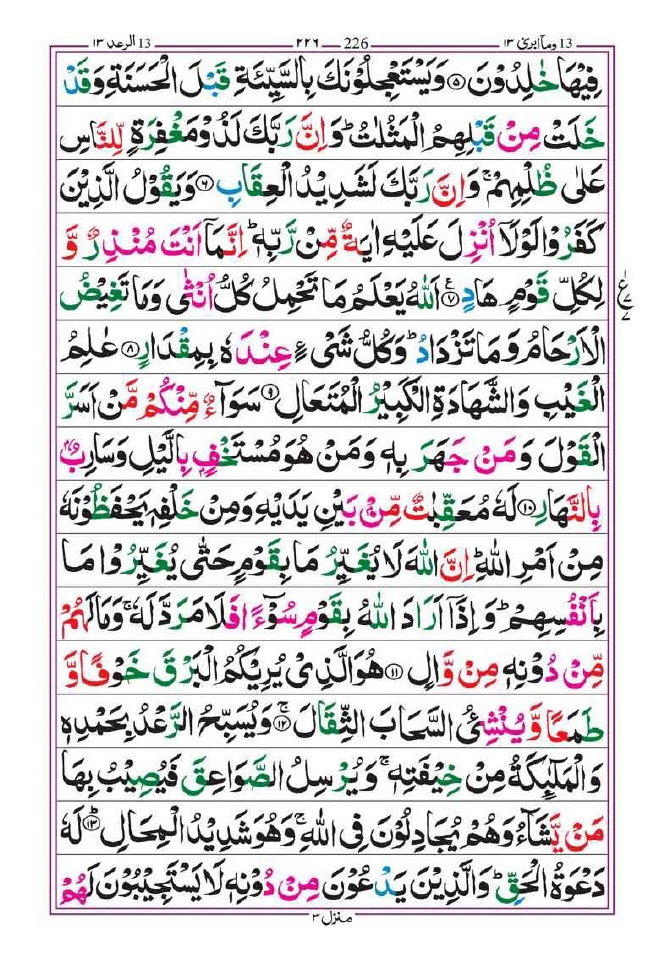 13 وما ابرئ ١٣ 226 ٢٢٦ 13 الرعد ١٣
فِيْهَا خٰلِدُوْنَ ۵ وَيَسْتَعْجِلُوْنَكَ بِالسَّيِّئَةِ قَبْلَ الْحَسَنَةِ وَقَدْ
خَلَتْ مِنْ قَبْلِهِمُ الْمَثُلٰتُ ؕ وَاِنَّ رَبَّكَ لَذُوْ مَغْفِرَةٍ لِّلنَّاسِ
عَلٰى ظُلْمِهِمْ ۚ وَاِنَّ رَبَّكَ لَشَدِيْدُ الْعِقَابِ ۶ وَيَقُوْلُ الَّذِيْنَ
كَفَرُوْا لَوْلَاۤ اُنْزِلَ عَلَيْهِ اٰيَةٌ مِّنْ رَّبِّهٖ ؕ اِنَّمَاۤ اَنْتَ مُنْذِرٌ وَّ
لِكُلِّ قَوْمٍ هَادٍ ۷ ع اَللّٰهُ يَعْلَمُ مَا تَحْمِلُ كُلُّ اُنْثٰى وَمَا تَغِيْضُ
ع ۷
الْاَرْحَامُ وَمَا تَزْدَادُ ؕ وَكُلُّ شَىْءٍ عِنْدَهٗ بِمِقْدَارٍ ۸ عٰلِمُ
الْغَيْبِ وَالشَّهَادَةِ الْكَبِيْرُ الْمُتَعَالِ ۹ سَوَآءٌ مِّنْكُمْ مَّنْ اَسَرَّ
الْقَوْلَ وَمَنْ جَهَرَ بِهٖ وَمَنْ هُوَ مُسْتَخْفٍۭ بِالَّيْلِ وَسَارِبٌۢ
بِالنَّهَارِ ۱۰ لَهٗ مُعَقِّبٰتٌ مِّنْۢ بَيْنِ يَدَيْهِ وَمِنْ خَلْفِهٖ يَحْفَظُوْنَهٗ
مِنْ اَمْرِ اللّٰهِ ؕ اِنَّ اللّٰهَ لَا يُغَيِّرُ مَا بِقَوْمٍ حَتّٰى يُغَيِّرُوْا مَا
بِاَنْفُسِهِمْ ؕ وَاِذَاۤ اَرَادَ اللّٰهُ بِقَوْمٍ سُوْٓءًا فَلَا مَرَدَّ لَهٗ ۚ وَمَا لَهُمْ
مِّنْ دُوْنِهٖ مِنْ وَّالٍ ۱۱ هُوَ الَّذِىْ يُرِيْكُمُ الْبَرْقَ خَوْفًا وَّ
طَمَعًا وَّيُنْشِئُ السَّحَابَ الثِّقَالَ ۱۲ ۚ وَيُسَبِّحُ الرَّعْدُ بِحَمْدِهٖ
وَالْمَلٰٓئِكَةُ مِنْ خِيْفَتِهٖ ۚ وَيُرْسِلُ الصَّوَاعِقَ فَيُصِيْبُ بِهَا
مَنْ يَّشَآءُ وَهُمْ يُجَادِلُوْنَ فِى اللّٰهِ ۚ وَهُوَ شَدِيْدُ الْمِحَالِ ؕ ۱۳ لَهٗ
دَعْوَةُ الْحَقِّ ؕ وَالَّذِيْنَ يَدْعُوْنَ مِنْ دُوْنِهٖ لَا يَسْتَجِيْبُوْنَ لَهُمْ
منزل ۳